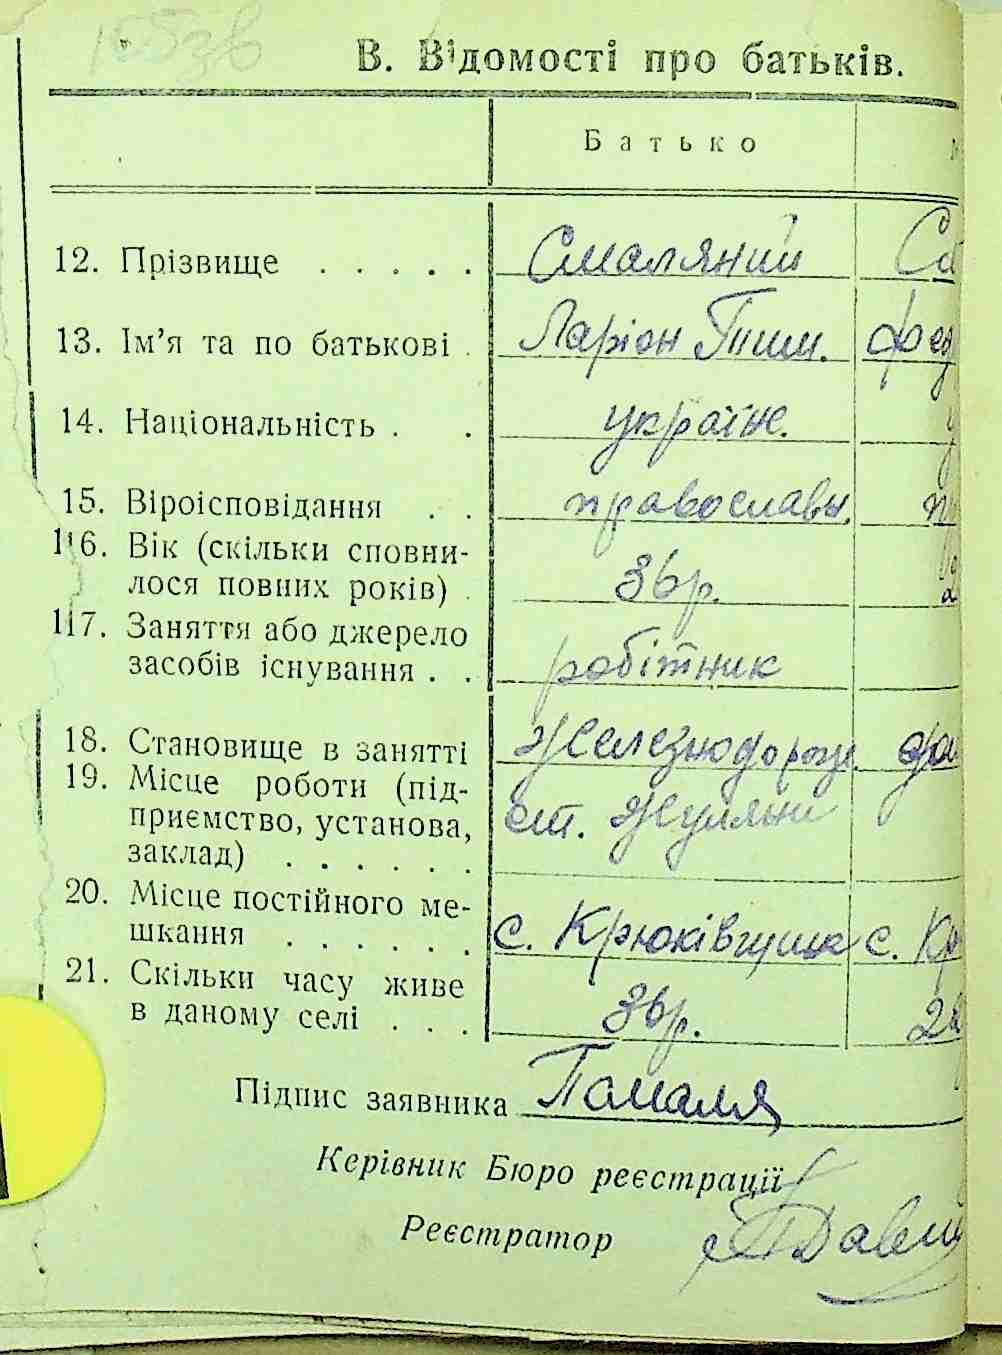 В. Відомості про батьків.
Батько
12. Прізвище . . . . . Смаляний См
13. Ім’я та по батькові . Ларіон Тим. Фед
14. Національність . . україне. у
15. Віроісповідання . . православн. п
16. Вік (скільки сповни-
лося повних років) . 36 р.
17. Заняття або джерело
засобів існування . . робітник
18. Становище в занятті Железнодорож.
19. Місце роботи (під- ст. Жуляни
приємство, установа,
заклад) . . . . . .
20. Місце постійного ме-
шкання . . . . . . с. Крюківщина с. Кр
21. Скільки часу живе
в даному селі . . . 36 р. 2
Підпис заявника
Керівник Бюро реєстрації
Реєстратор